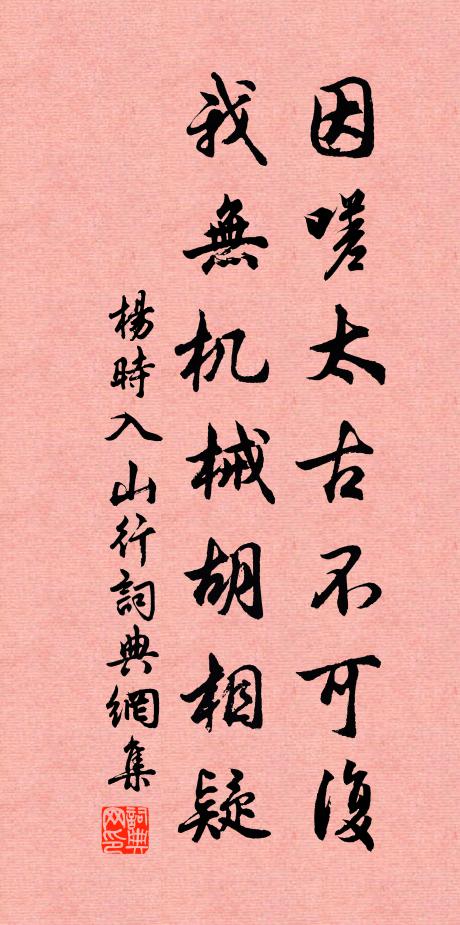 因嗟太古不可復
我無机械胡相疑
楊時入山行詞典網集
詞典网印